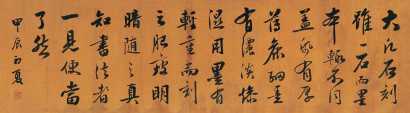 大凡石刻
雖一石而墨
本輒不同
蓋紙有厚
薄麤細墨
有濃淡燥
濕用墨有
輕重而刻
之肥瘦明
暗隨之真
知書法者
一見便當
了然
甲辰初夏